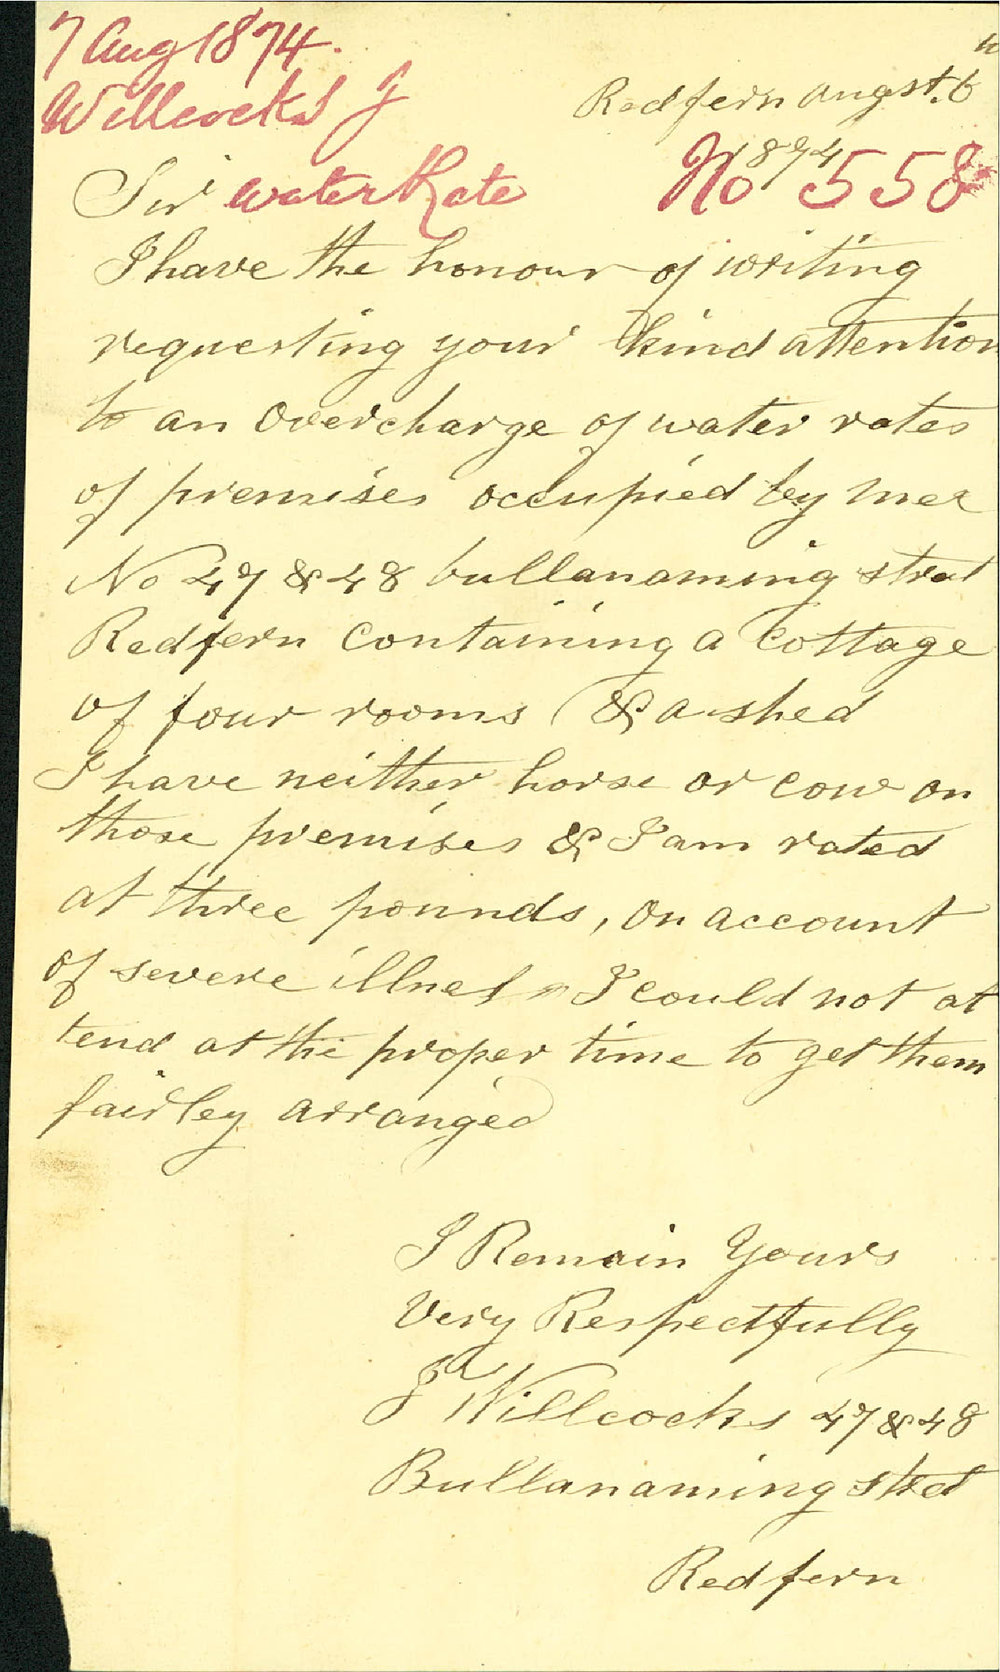 7 Aug 1874.
Willcocks J
Redfern Augst. 6
1874
No 558
Water Rate
Sir
I have the honour of writing
requesting your kind attention
to an overcharge of water rates
of premises occupied by me
No 47 & 48 bullanaming street
Redfern containing a Cottage
of four rooms & a shed
I have neither horse or cow on
those premises & I am rated
at three pounds, on account
of severe illness I could not at
tend at the proper time to get them
fairley arranged
I Remain Yours
Very Respectfully
J Willcocks 47 & 48
Bullanaming street
Redfern